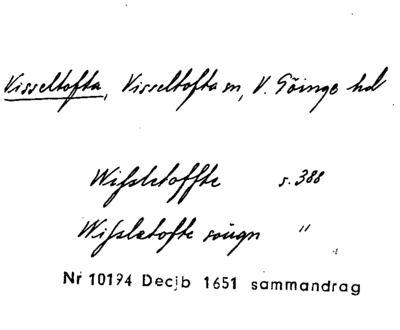 Visseltofta, Visseltofta sn, V. Göinge hd
Wißletoffte s. 388
Wißletofte sougn "
Nr 10194 Decjb 1651 sammandrag